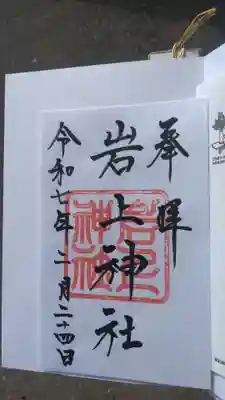 奉拝
岩上神社
岩上
神社
令和七年二月二十四日